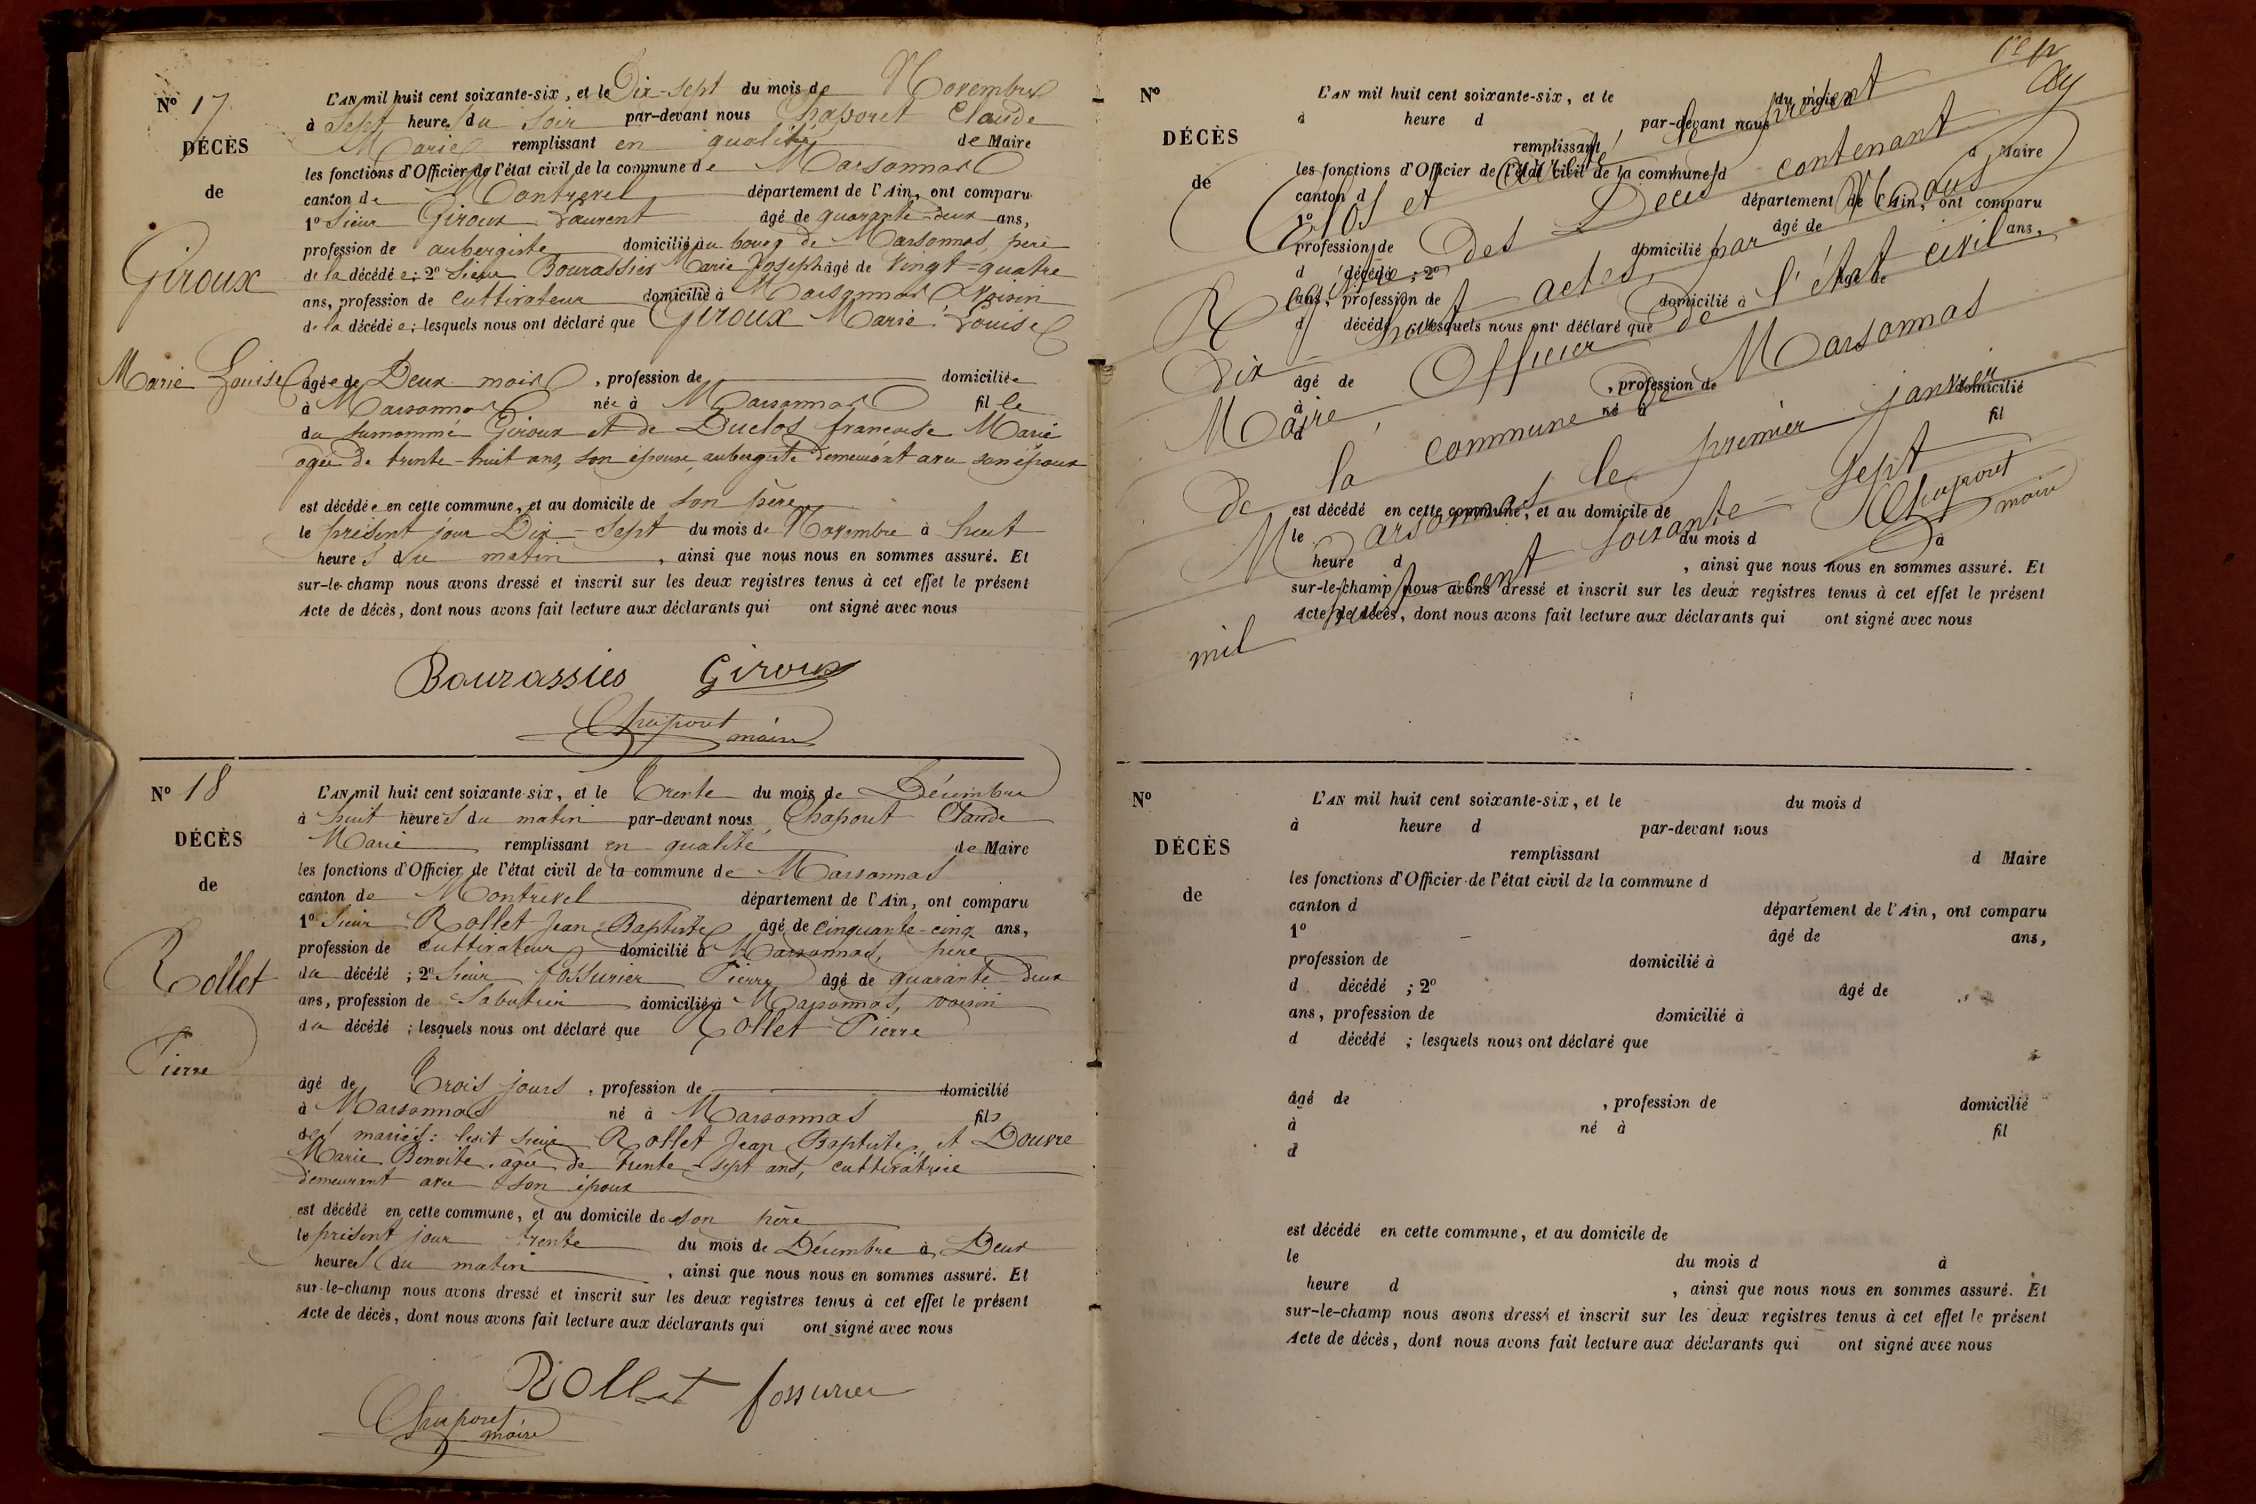 N° 17
DÉCÈS
de
Giroux
Marie Louise
L'AN mil huit cent soixante-six, et le Dix-sept du mois de Novembre
à Sept heures du soir par-devant nous Chaporet Claude
Marie remplissant en qualité de Maire
les fonctions d'Officier de l'état civil de la commune de Marsonnas
canton de Montrevel département de l'Ain, ont comparu
1° Sieur Giroux Laurent âgé de quarante-deux ans,
profession de aubergiste domicilié au bourg de Marsonnas, père
de la décédée ; 2° Sieur Bourassier Marie Joseph âgé de vingt-quatre
ans, profession de cultivateur domicilié à Marsonnas voisin
de la décédée ; lesquels nous ont déclaré que Giroux Marie Louise
âgée de Deux mois, profession de domiciliée
à Marsonnas née à Marsonnas fille
du surnommé Giroux et de Duclos françoise Marie
agée de trente-huit ans, son épouse, aubergiste demeurant avec son époux
est décédée en cette commune, et au domicile de son père
le présent jour Dix-sept du mois de Novembre à huit
heures du matin, ainsi que nous nous en sommes assuré. Et
sur-le-champ nous avons dressé et inscrit sur les deux registres tenus à cet effet le présent
Acte de décès, dont nous avons fait lecture aux déclarants qui ont signé avec nous
Bourassies Giroux
Chaporet
maire
N° 18
DÉCÈS
de
Rollet
Pierre
L'AN mil huit cent soixante-six, et le Trente du mois de Décembre
à huit heures du matin par-devant nous Chaporet Claude
Marie remplissant en qualité de Maire
les fonctions d'Officier de l'état civil de la commune de Marsonnas
canton de Montrevel département de l'Ain, ont comparu
1° Sieur Rollet Jean Baptiste âgé de cinquante-cinq ans,
profession de cultivateur domicilié à Marsonnas, père
du décédé ; 2° Sieur fossurier Pierre âgé de quarante-deux
ans, profession de Sabotier domicilié à Marsonnas, voisin
du décédé ; lesquels nous ont déclaré que Rollet Pierre
âgé de Trois jours, profession de domicilié
à Marsonnas né à Marsonnas fils
des mariés : ledit sieur Rollet Jean Baptiste, et Douvre
Marie Benoite, agée de trente-sept ans, cultivatrice
demeurant avec son époux
est décédé en cette commune, et au domicile de son père
le présent jour trente du mois de Décembre à Deux
heures du matin, ainsi que nous nous en sommes assuré. Et
sur-le-champ nous avons dressé et inscrit sur les deux registres tenus à cet effet le présent
Acte de décès, dont nous avons fait lecture aux déclarants qui ont signé avec nous
Rollet fossurier
Chaporet
maire
N°
DÉCÈS
de
L'AN mil huit cent soixante-six, et le du mois d
à heure d par-devant nous
remplissant d Maire
les fonctions d'Officier de l'état civil de la commune d
canton d département de l'Ain, ont comparu
1° âgé de ans,
profession de domicilié à
d décédé ; 2° âgé de
ans, profession de domicilié à
d décédé ; lesquels nous ont déclaré que
âgé de , profession de domicilié
à né à fil
d
est décédé en cette commune, et au domicile de
le du mois d à
heure d , ainsi que nous nous en sommes assuré. Et
sur-le-champ nous avons dressé et inscrit sur les deux registres tenus à cet effet le présent
Acte de décès, dont nous avons fait lecture aux déclarants qui ont signé avec nous
Clos et arrêté, le présent
Registre des Décès contenant
Dix-huit actes, par Nous
Maire, Officier de l'état civil
de la commune de Marsonnas
Marsonnas le premier janvier
mil huit cent soixante-sept
Chaporet
maire
N°
DÉCÈS
de
L'AN mil huit cent soixante-six, et le du mois d
à heure d par-devant nous
remplissant d Maire
les fonctions d'Officier de l'état civil de la commune d
canton d département de l'Ain, ont comparu
1° âgé de ans,
profession de domicilié à
d décédé ; 2° âgé de
ans, profession de domicilié à
d décédé ; lesquels nous ont déclaré que
âgé de , profession de domicilié
à né à fil
d
est décédé en cette commune, et au domicile de
le du mois d à
heure d , ainsi que nous nous en sommes assuré. Et
sur-le-champ nous avons dressé et inscrit sur les deux registres tenus à cet effet le présent
Acte de décès, dont nous avons fait lecture aux déclarants qui ont signé avec nous